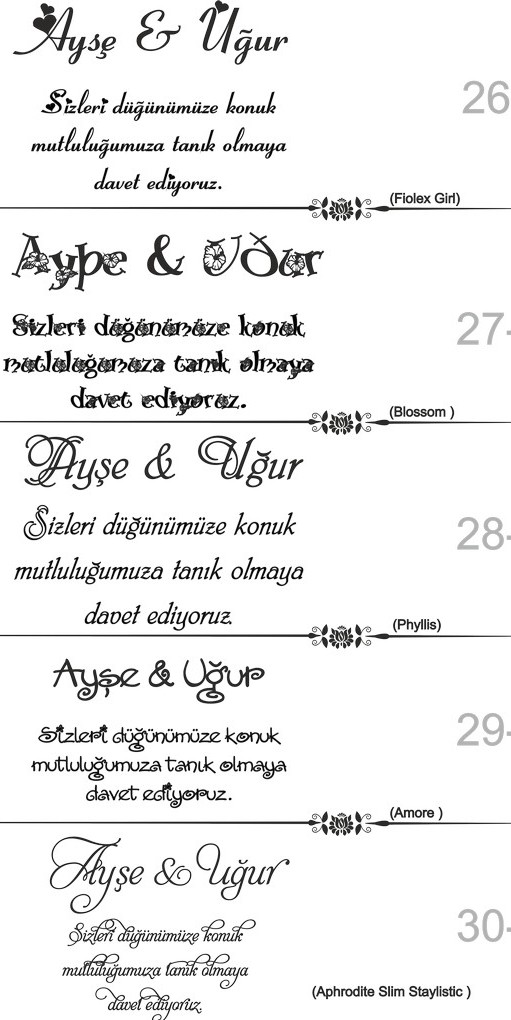 Ayşe & Uğur
Sizleri düğünümüze konuk
mutluluğumuza tanık olmaya
davet ediyoruz.
26
(Fiolex Girl)
Ayþe & Uður
Sizleri düğünümüze konuk
mutluluğumuza tanık olmaya
davet ediyoruz.
27-
(Blossom )
Ayşe & Uğur
Sizleri düğünümüze konuk
mutluluğumuza tanık olmaya
davet ediyoruz.
28-
(Phyllis)
Ayşe & Uğur
Sizleri düğünümüze konuk
mutluluğumuza tanık olmaya
davet ediyoruz.
29-
(Amore )
Ayşe & Uğur
Sizleri düğünümüze konuk
mutluluğumuza tanık olmaya
davet ediyoruz.
30-
(Aphrodite Slim Staylistic )